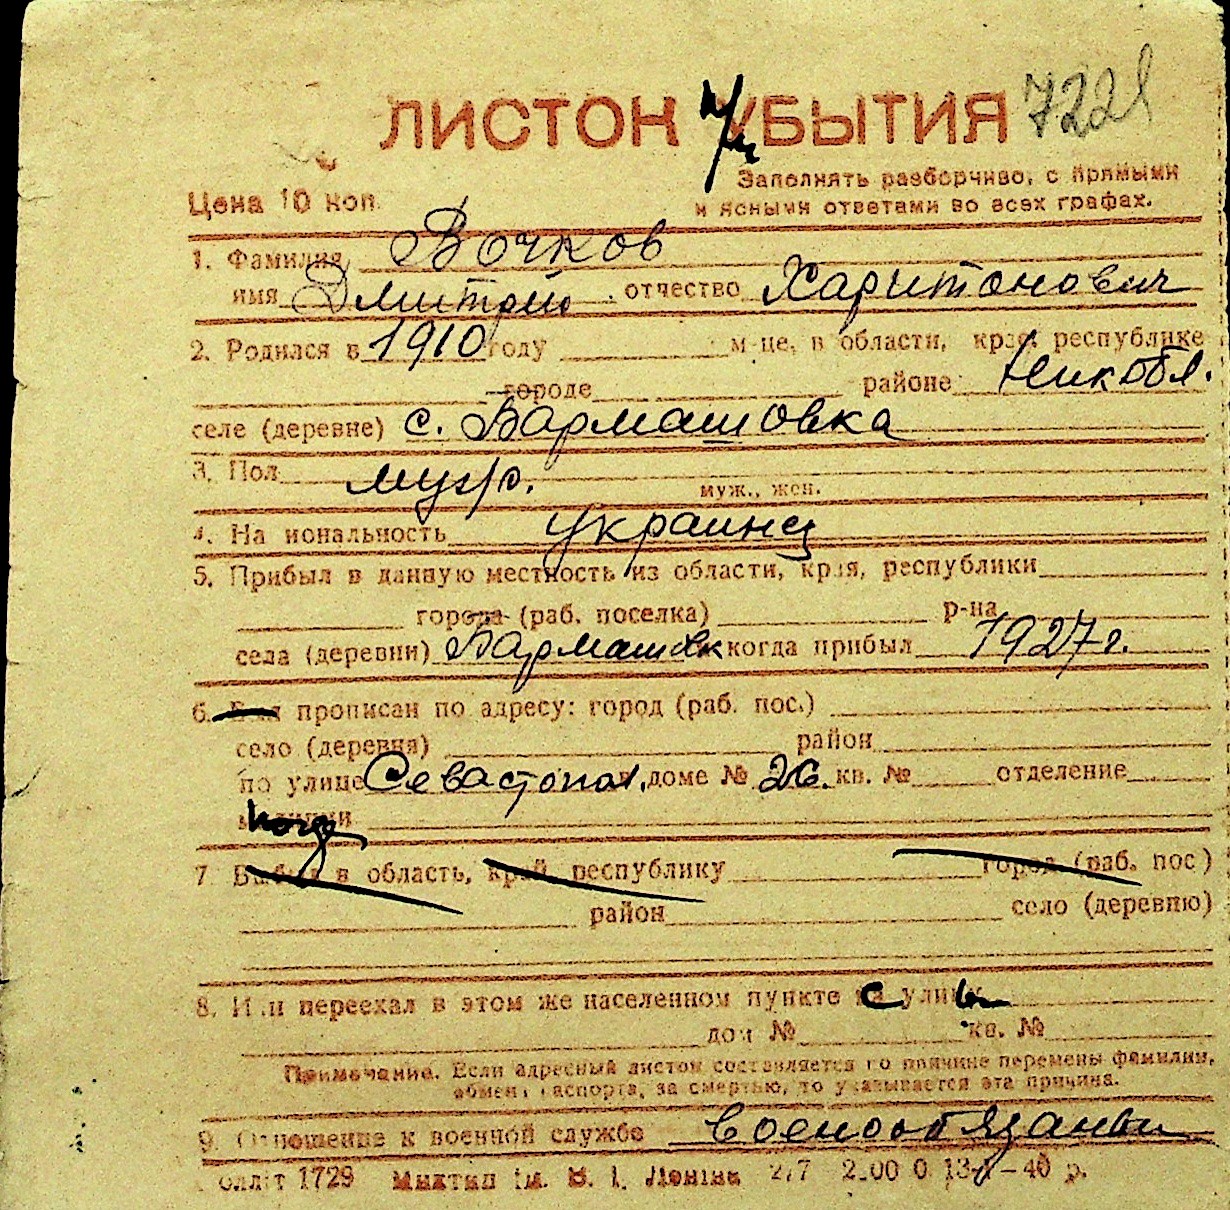 ЛИСТОК УБЫТИЯ 7221
Заполнять разборчиво, с прямыми
Цена 10 коп. и ясными ответами во всех графах.
1. Фамилия Вочков
имя Дмитрий отчество Харитонович
2. Родился в 1910 году м-це, в области, крае, республике
городе районе Ник обл.
селе (деревне) с. Бармашовка
3. Пол муж. муж., жен.
4. Национальность украинец
5. Прибыл в данную местность из области, края, республики
города (раб. поселка) р-на
села (деревни) Бармашовк когда прибыл 1927 г.
6. Был прописан по адресу: город (раб. пос.)
село (деревня) район
по улице Севастопол. в доме № 26. кв. № отделение
милиции
7 Выбыл в область, край, республику город (раб. пос)
район село (деревню)
8. Или переехал в этом же населенном пункте с улицы
дом № кв. №
Примечание. Если адресный листок составляется по причине перемены фамилии,
обмена паспорта, за смертью, то указывается эта причина.
9. Отношение к военной службе военообязаный
1729 ім. В. І. Леніна 40 р.